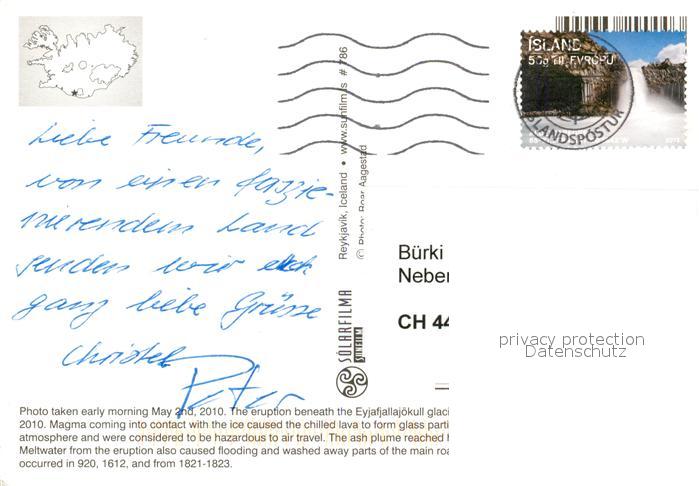 Liebe Freunde,
von einem faszi-
nierendem Land
senden wir euch
ganz liebe Grüsse
Christel
Peter
Photo taken early morning May 2nd, 2010. The eruption beneath the Eyjafjallajökull glaci
2010. Magma coming into contact with the ice caused the chilled lava to form glass parti
atmosphere and were considered to be hazardous to air travel. The ash plume reached h
Meltwater from the eruption also caused flooding and washed away parts of the main roa
occurred in 920, 1612, and from 1821-1823.
SÓLARFILMA
Reykjavík, Iceland • www.sunfilm.is # 786
© Photo: Roar Aagestad
ÍSLAND
50g TIL EVRÓPU
ÍSLANDSPÓSTUR
Bürki
Neber
CH 44
privacy protection
Datenschutz